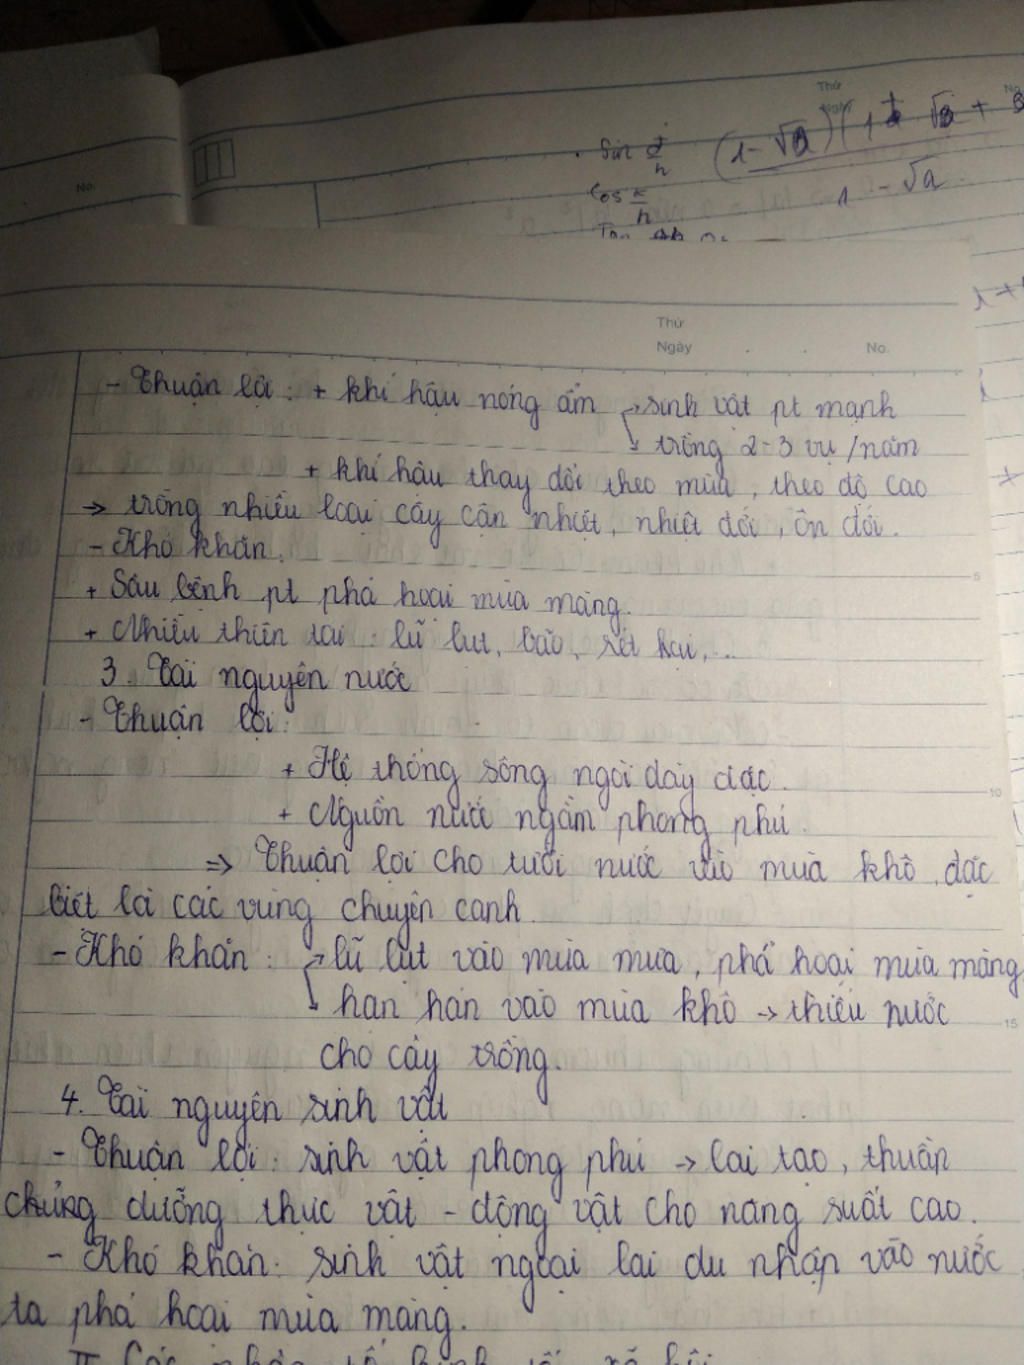 No.
Thứ
Ngày
No
Sin đ/h (1-√a)(1+√a + a
Cos k/h 1-√a
Thứ
Ngày . . No.
- Thuận lợi : + khí hậu nóng ẩm → sinh vật pt mạnh
↳ trồng 2-3 vụ /năm
+ khí hậu thay đổi theo mùa, theo độ cao
→ trồng nhiều loại cây cận nhiệt, nhiệt đới, ôn đới.
- Khó khăn :
+ Sâu bệnh pt phá hoại mùa màng.
+ Nhiều thiên tai : lũ lụt, bão, sét hại,...
3. Tài nguyên nước
- Thuận lợi :
+ Hệ thống sông ngòi dày đặc.
+ Nguồn nước ngầm phong phú.
=> Thuận lợi cho tưới nước vào mùa khô, đặc
biết là các vùng chuyên canh.
- Khó khăn : → lũ lụt vào mùa mưa, phá hoại mùa màng
↳ hạn hán vào mùa khô → thiếu nước
cho cây trồng.
4. Tài nguyên sinh vật
- Thuận lợi : sinh vật phong phú → lai tạo, thuần
chủng dưỡng thực vật - động vật cho năng suất cao.
- Khó khăn : sinh vật ngoại lai du nhập vào nước
ta phá hoại mùa màng.
II Các nhân tố kinh tế xã hội
5
10
15